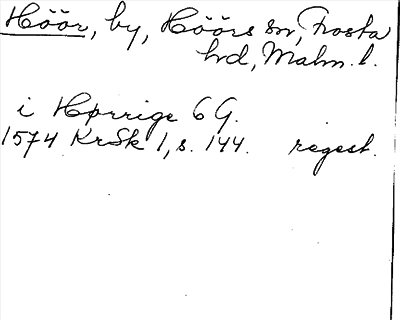 Höör, by, Höörs sn, Frosta
hd, Malm. l.
i Hørrige 6 G.
1574 KrSk 1, s. 144. regest.